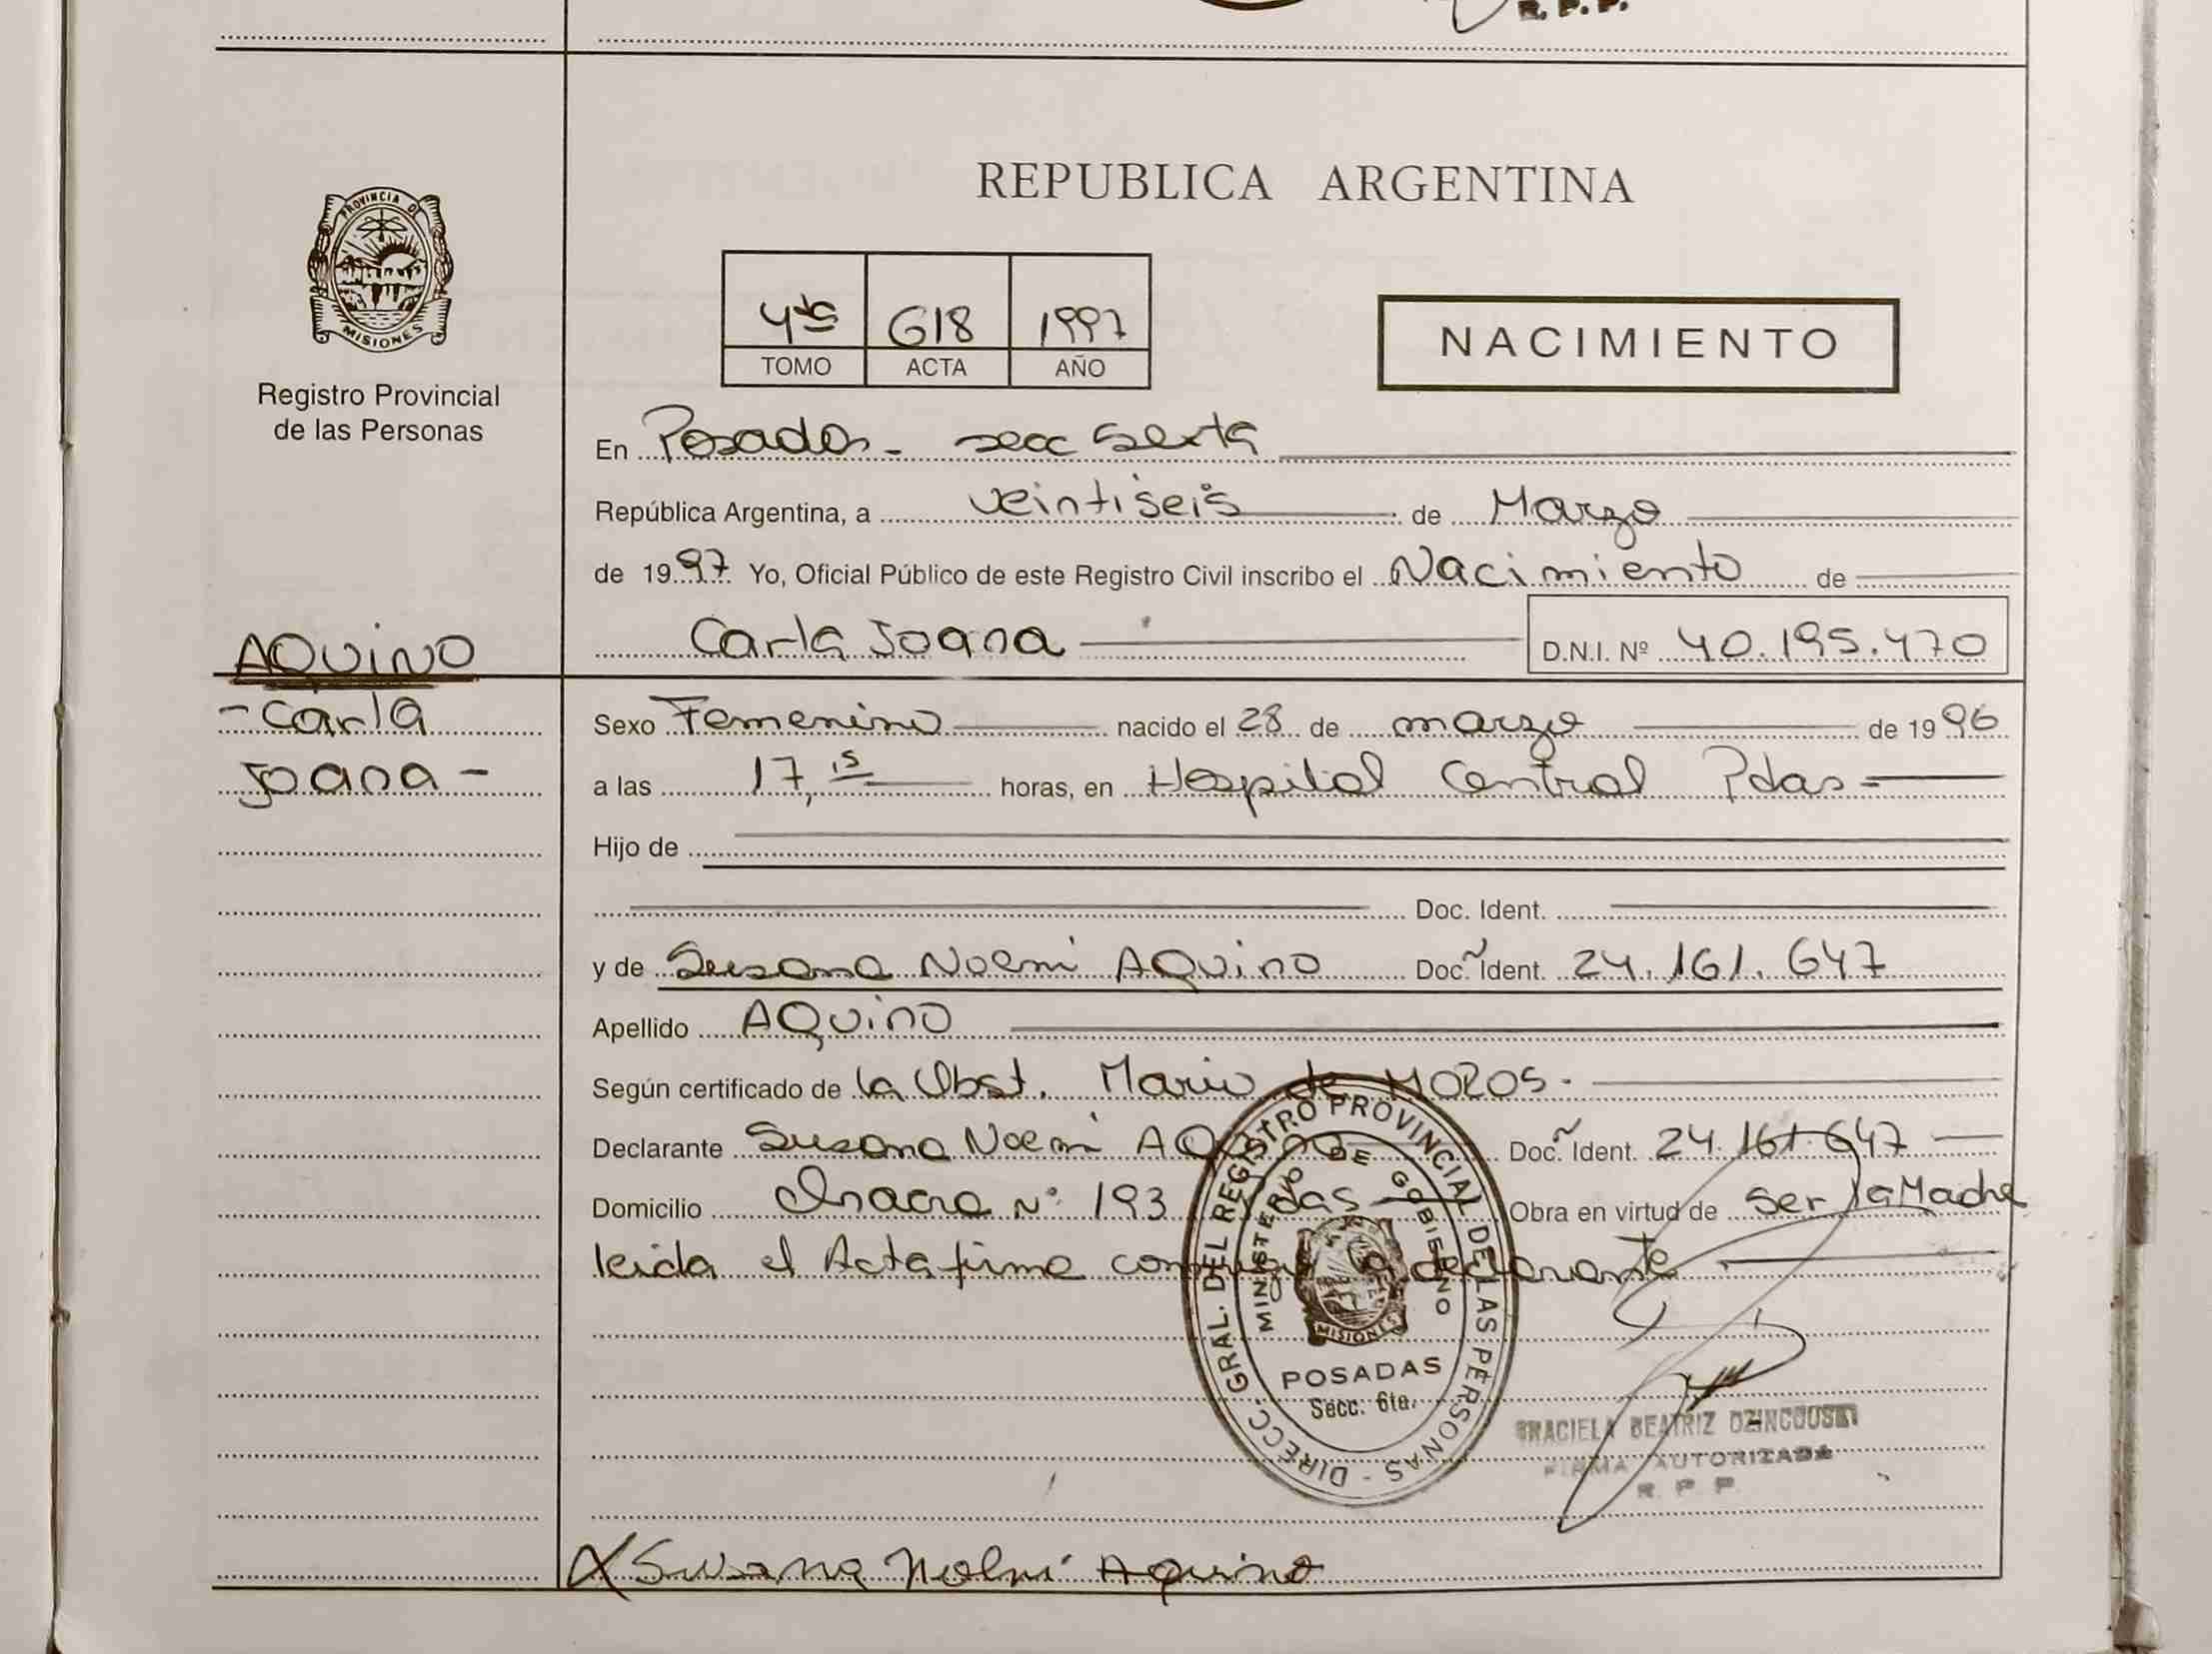 R. P. P.
PROVINCIA DE
MISIONES
Registro Provincial
de las Personas
REPUBLICA ARGENTINA
4to 618 1997
TOMO ACTA AÑO
NACIMIENTO
En Posadas - secc Sexta
República Argentina, a veintiseis de Marzo
de 1997 Yo, Oficial Público de este Registro Civil inscribo el Nacimiento de
Carla Joana D.N.I. Nº 40.195.470
AQUINO
- Carla
Joana -
Sexo Femenino nacido el 28 de marzo de 1996
a las 17,15 horas, en Hospital Central Pdas
Hijo de
Doc. Ident.
y de Susana Noemi AQuino Doc. Ident. 24.161.647
Apellido AQuino
Según certificado de la Obst. Maria de MOROS.
Declarante Susana Noemi AQuino Doc. Ident. 24.161.647
Domicilio Chacra Nº 193 Pdas Obra en virtud de Ser la Madre
leida el Acta firma conmigo la declarante
DIRECC. GRAL. DEL REGISTRO PROVINCIAL DE LAS PERSONAS -
MINISTERIO DE GOBIERNO
MISIONES
POSADAS
Secc. 6ta.
GRACIELA BEATRIZ
FIRMA AUTORIZADA
R. P. P.
X Susana Noemi Aquino